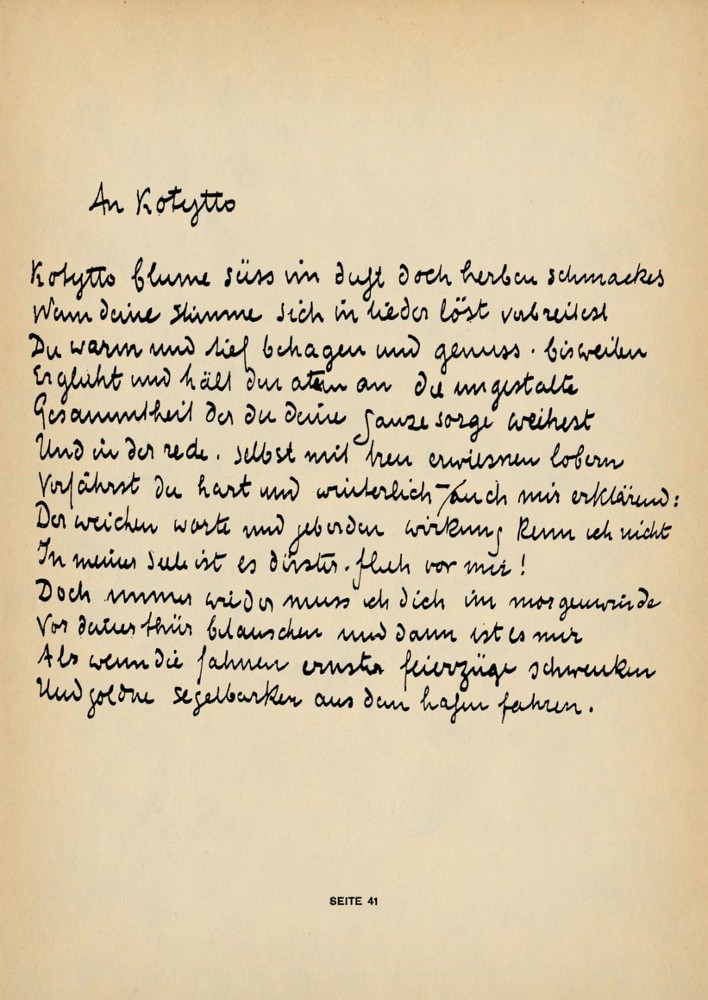 An Kotytto
Kotytto blume süss im duft doch herben schmackes
Wenn deine stimme sich in lieder löst verbreitest
Du warm und tief behagen und genuss · bisweilen
Erglüht und hält den atem an die ungestalte
Gesammtheit der du deine ganze sorge weihest
Und in der rede · selbst mit treu erwiesnen lobern
Verfährst du hart und winterlich – auch mir erklärend:
Der weichen worte und geberden wirkung kenn ich nicht
In meiner seele ist es düster · flieh vor mir!
Doch immer wieder muss ich dich im morgenwinde
Vor deiner thür belauschen und dann ist es mir
Als wenn die fahnen ernster feierzüge schwenken
Und goldne segelbarken aus dem hafen fahren.
SEITE 41